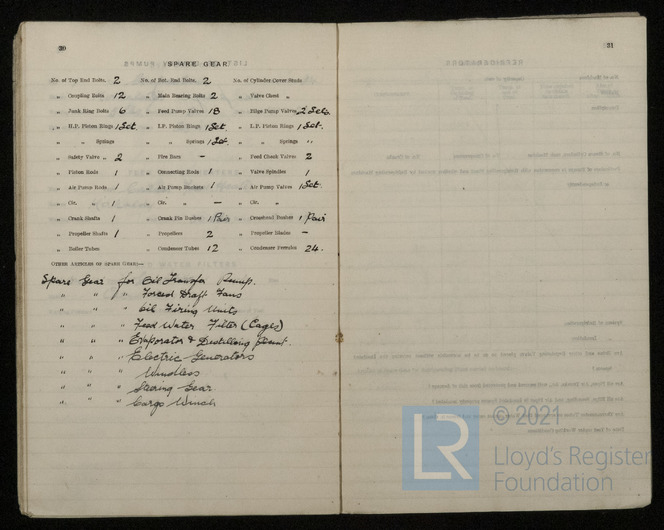 30
SPARE GEAR
No. of Top End Bolts. 2 No. of Bot. End Bolts. 2 No. of Cylinder Cover Studs
„ Coupling Bolts 12 „ Main Bearing Bolts 2 „ Valve Chest „
„ Junk Ring Bolts 6 „ Feed Pump Valves 18 „ Bilge Pump Valves 2 Sets.
„ H.P. Piston Rings 1 Set. „ I.P. Piston Rings 1 Set. „ L.P. Piston Rings 1 Set.
„ „ Springs „ „ Springs 1 Set. „ „ Springs „
„ Safety Valve „ 2 „ Fire Bars – „ Feed Check Valves 2
„ Piston Rods 1 „ Connecting Rods 1 „ Valve Spindles 1
„ Air Pump Rods 1 „ Air Pump Buckets 1 „ Air Pump Valves 1 Set.
„ Cir. „ 1 „ Cir. „ – „ Cir. „
„ Crank Shafts 1 „ Crank Pin Bushes 1 Pair „ Crosshead Bushes 1 Pair
„ Propeller Shafts 1 „ Propellers 2 „ Propeller Blades –
„ Boiler Tubes „ Condenser Tubes 12 „ Condenser Ferrules 24.
OTHER ARTICLES OF SPARE GEAR:—
Spare Gear for Oil Transfer Pump.
„ „ „ Forced Draft Fans
„ „ „ Oil Firing Units
„ „ „ Feed Water Filter (Cages)
„ „ „ Evaporator & Distilling Plant.
„ „ „ Electric Generators
„ „ „ Windlass
„ „ „ Steering Gear
„ „ „ Cargo Winch
31
LR
© 2021
Lloyd's Register
Foundation